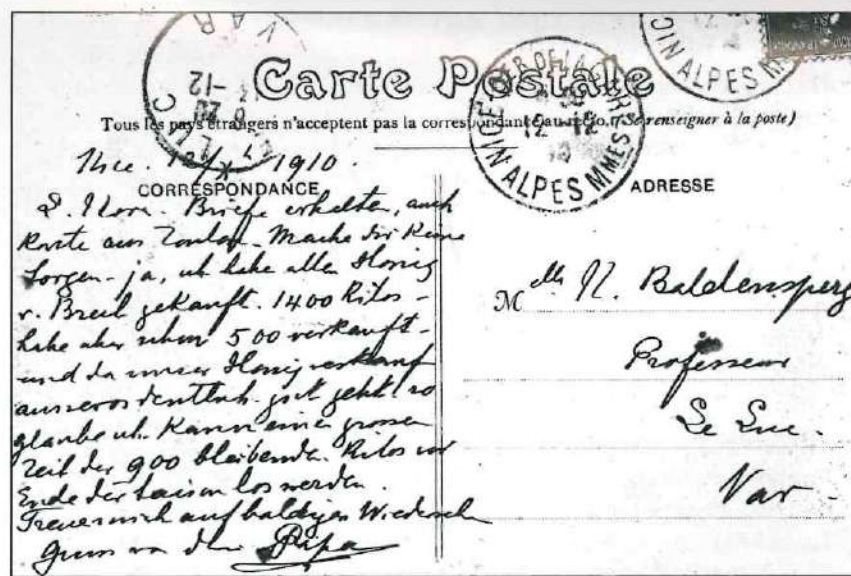 Carte Postale
Tous les pays étrangers n'acceptent pas la correspondance au recto. (Se renseigner à la poste)
1910.
CORRESPONDANCE
L. Nora. Briefe erhalten, auch
Karte aus Toulon. Mache dir Keine
Sorgen - ja, ich habe allen Honig
v. Breil gekauft. 1400 Kilos -
habe aber schon 500 verkauft -
und da unser Honigverkauf
ausserordentlich gut geht, so
glaube ich Kann einen grossen
Teil der 900 bleibenden Kilos vor
Ende der Saison los werden.
Freue mich auf baldigen Wiedersehn
Gruss von dein Papa
ADRESSE
Melle N. Baldensperg
Professeur
Le Luc.
Var -
VAR
ALPES MMES
ALPES M